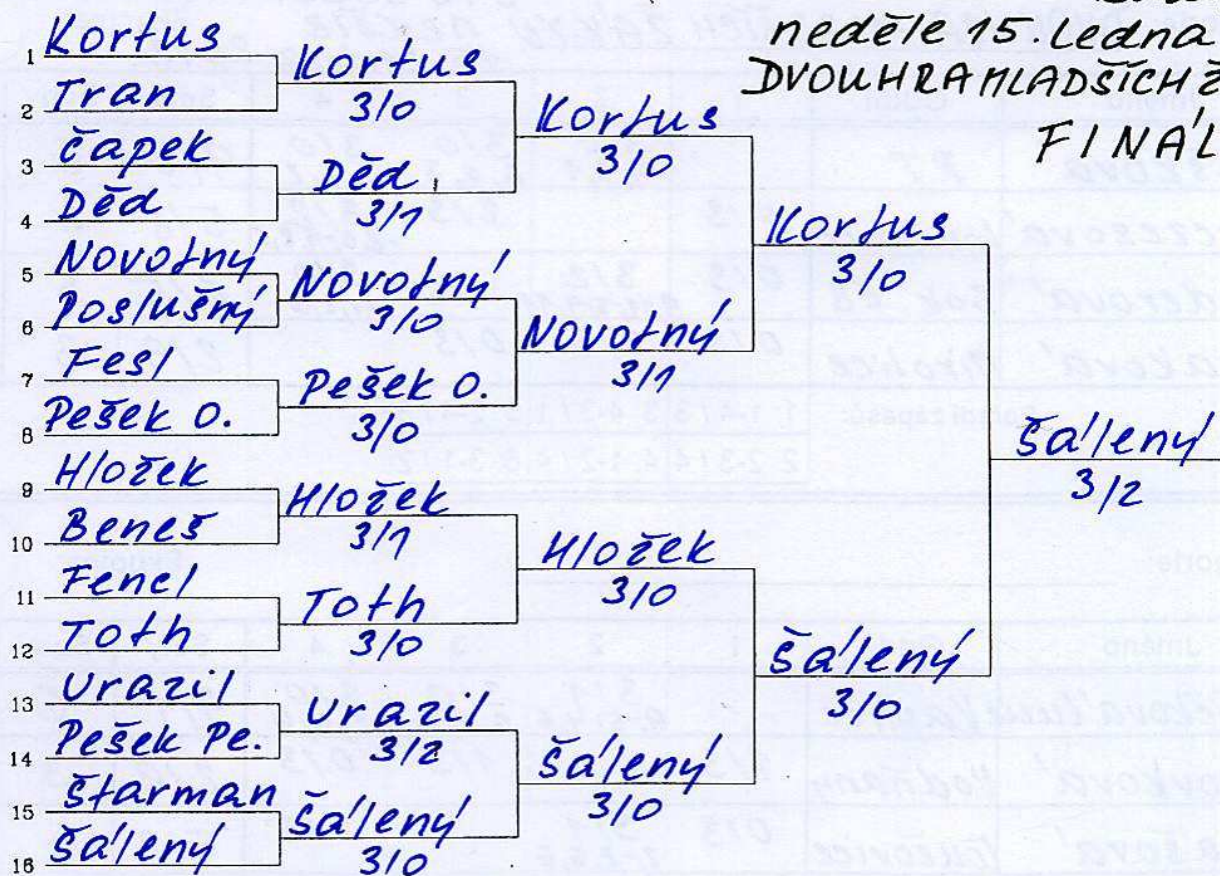 neděle 15. ledna
DVOUHRA MLADŠÍCH
FINÁL
1 Kortus
2 Tran
3 Čapek
4 Děd
5 Novotný
6 Poslušný
7 Fesl
8 Pešek O.
9 Hložek
10 Beneš
11 Fencl
12 Toth
13 Urazil
14 Pešek Pe.
15 Štarman
16 Šálený
Kortus
3/0
Děd
3/1
Novotný
3/0
Pešek O.
3/0
Hložek
3/1
Toth
3/0
Urazil
3/2
Šálený
3/0
Kortus
3/0
Novotný
3/1
Hložek
3/0
Šálený
3/0
Kortus
3/0
Šálený
3/0
Šálený
3/2